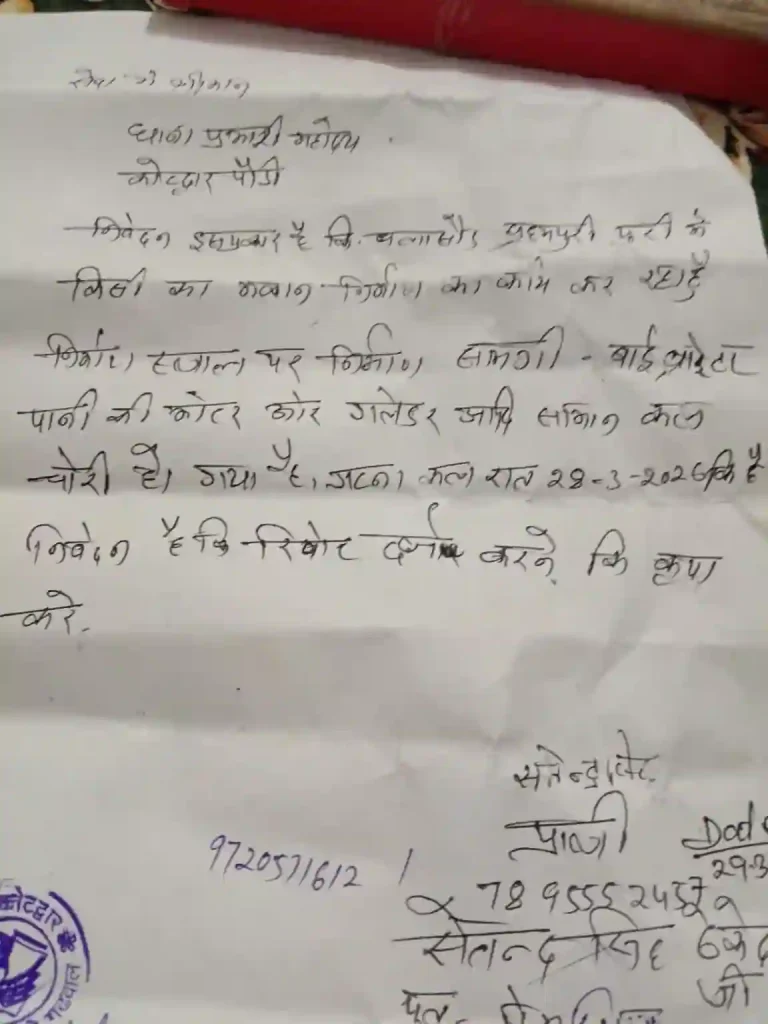 सेवा में श्रीमान
थाना प्रभारी महोदय
कोटद्वार पौडी
निवेदन इसप्रकार है कि. बलासौड़ पुरी में
किसी का मकान निर्माण का काम कर रहा हुँ
निर्माण स्थाल पर निर्माण सामग्री - बाईब्रोटर
पानी की मोटर ओर गलेडर आदि सामान कल
चोरी हो गया है, घटना कल रात 28-3-2026 कि है
निवेदन है कि रिपोट दर्ज करने कि कृपा
करे.
सतेन्द्र
प्रार्थी
29-3
9720571612
7895552457
सतेन्द्र सिंह ठेकेद
जी
पुत्र
कोटद्वार
गढवाल